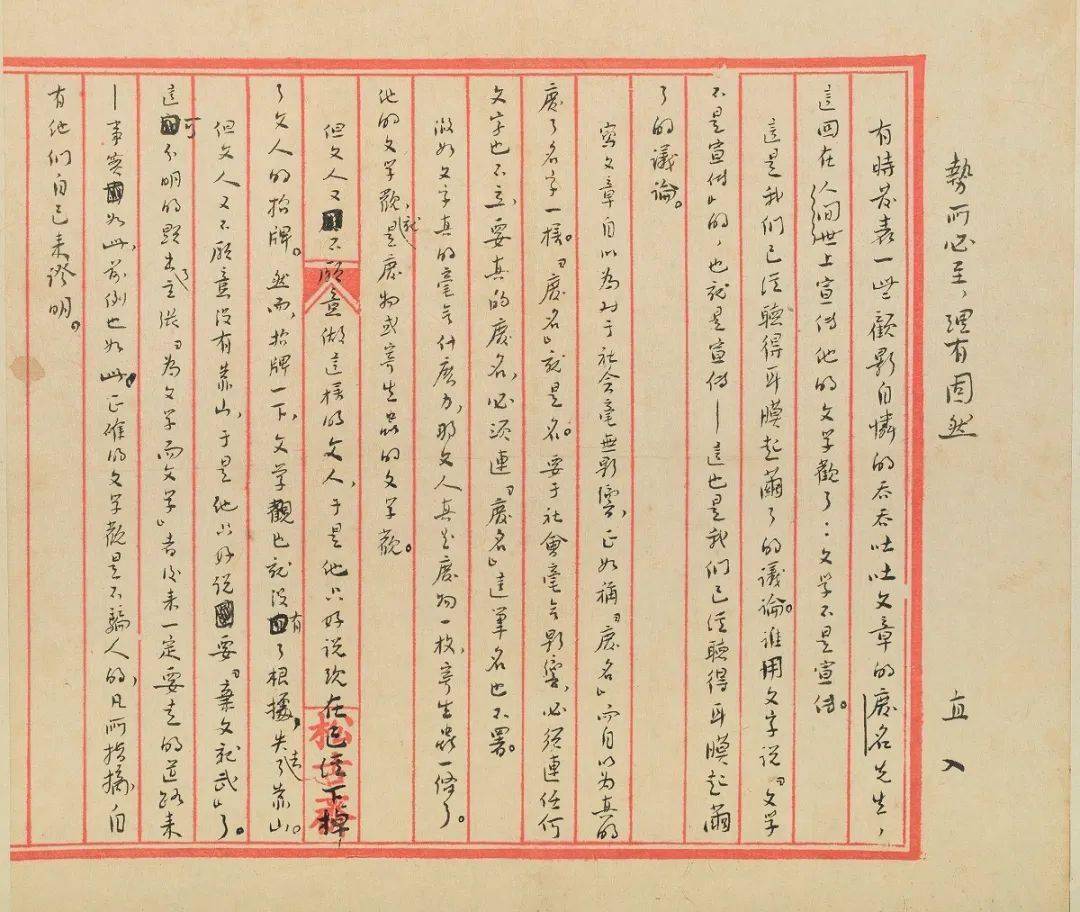 勢所必至,理有固然
直入
有時发表一些顧影自憐的吞吞吐吐文章的廢名先生,
這回在人间世上宣傳他的文学觀了:文学不是宣傳。
這是我们已经聽得耳膜起繭了的議論。谁用文字说『文学
不是宣傳』的,也就是宣傳——這也是我们已经聽得耳膜起繭
了的議論。
寫文章自以為对于社会毫無影響,正如稱『廢名』而自以为真的
廢了名字一樣。『廢名』就是名。要于社會毫无影響,必须連任何
文字也不立,要真的廢名,必须連『廢名』這筆名也不署。
假如文字真的毫无什麽力,那文人真是廢物一枚,寄生蟲一條了。
他的文学觀,就是廢物或寄生蟲的文学觀。
但文人又不願意做這樣的文人,于是他只好说现在已经下掉
了文人的招牌。然而,招牌一下,文学觀也就没有了根據,失去了靠山。
但文人又不願意没有靠山,于是他只好说要『棄文就武』了。
這可分明的顯出了主張『为文学而文学』者后来一定要走的道路来
——事实如此,前例也如此。正確的文学觀是不騙人的,凡所指摘,自
有他们自己来證明。